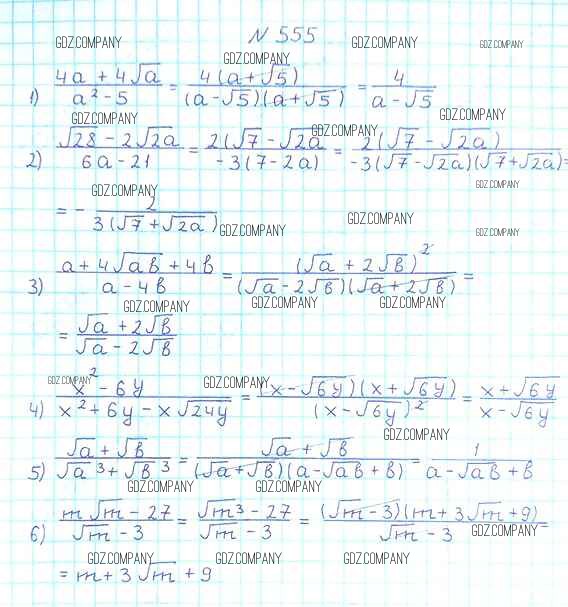 N 555
GDZ.COMPANY GDZ.COMPANY GDZ.COMPANY GDZ.COMPANY
1) (4a + 4√a)/(a² - 5) = (4(a + √5))/((a - √5)(a + √5)) = 4/(a - √5)
GDZ.COMPANY GDZ.COMPANY GDZ.COMPANY
2) (√28 - 2√2a)/(6a - 21) = (2(√7 - √2a)/(-3(7 - 2a) = (2(√7 - √2a))/(-3(√7 - √2a)(√7 + √2a)) =
GDZ.COMPANY GDZ.COMPANY
= - 2/(3(√7 + √2a))
GDZ.COMPANY GDZ.COMPANY GDZ.COMPANY
3) (a + 4√ab + 4b)/(a - 4b) = (√a + 2√b)²/((√a - 2√b)(√a + 2√b)) =
GDZ.COMPANY GDZ.COMPANY GDZ.COMPANY
= (√a + 2√b)/(√a - 2√b)
GDZ.COMPANY GDZ.COMPANY
4) (x² - 6y)/(x² + 6y - x√24y) = ((x - √6y)(x + √6y))/(x - √6y)² = (x + √6y)/(x - √6y)
GDZ.COMPANY
5) (√a + √b)/(√a³ + √b³) = (√a + √b)/((√a + √b)(a - √ab + b)) = 1/(a - √ab + b)
GDZ.COMPANY GDZ.COMPANY
6) (m√m - 27)/(√m - 3) = (√m³ - 27)/(√m - 3) = ((√m - 3)(m + 3√m + 9))/(√m - 3) =
GDZ.COMPANY
GDZ.COMPANY GDZ.COMPANY GDZ.COMPANY
= m + 3√m + 9